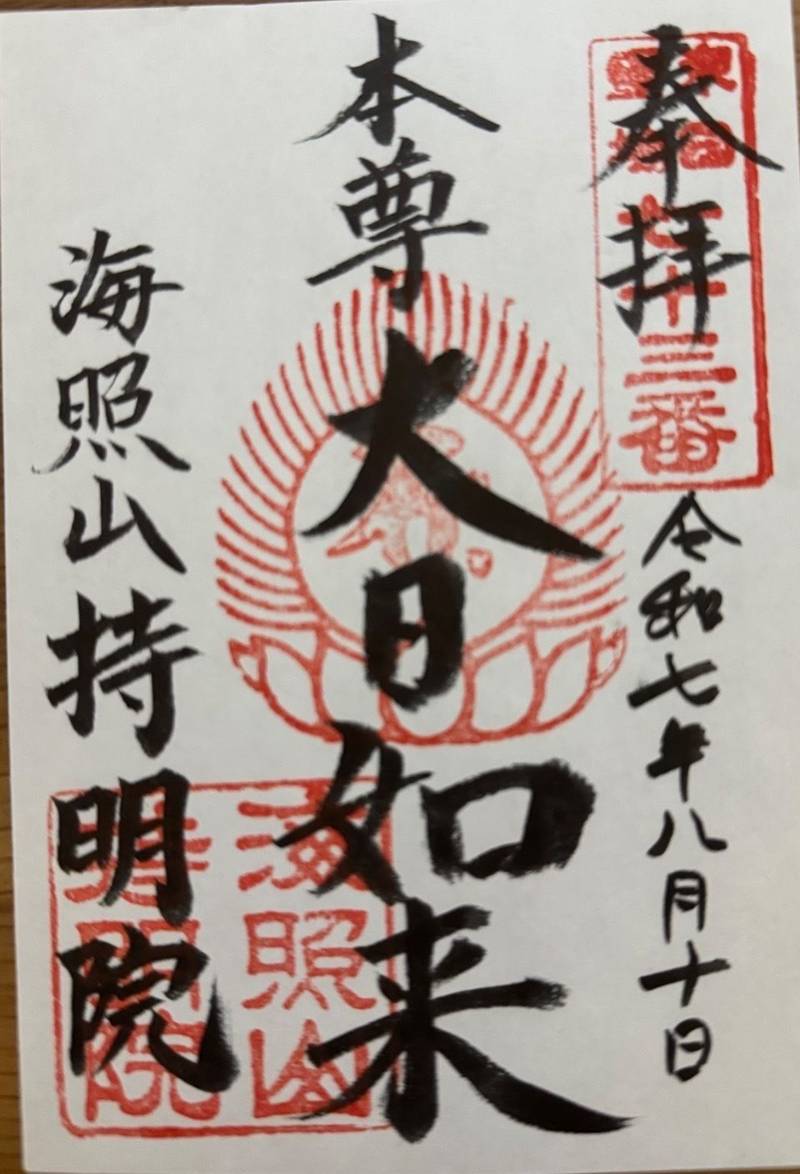 奉拝
令和七年八月十日
本尊
大日如来
海照山持明院
十三番
海照山
持明院